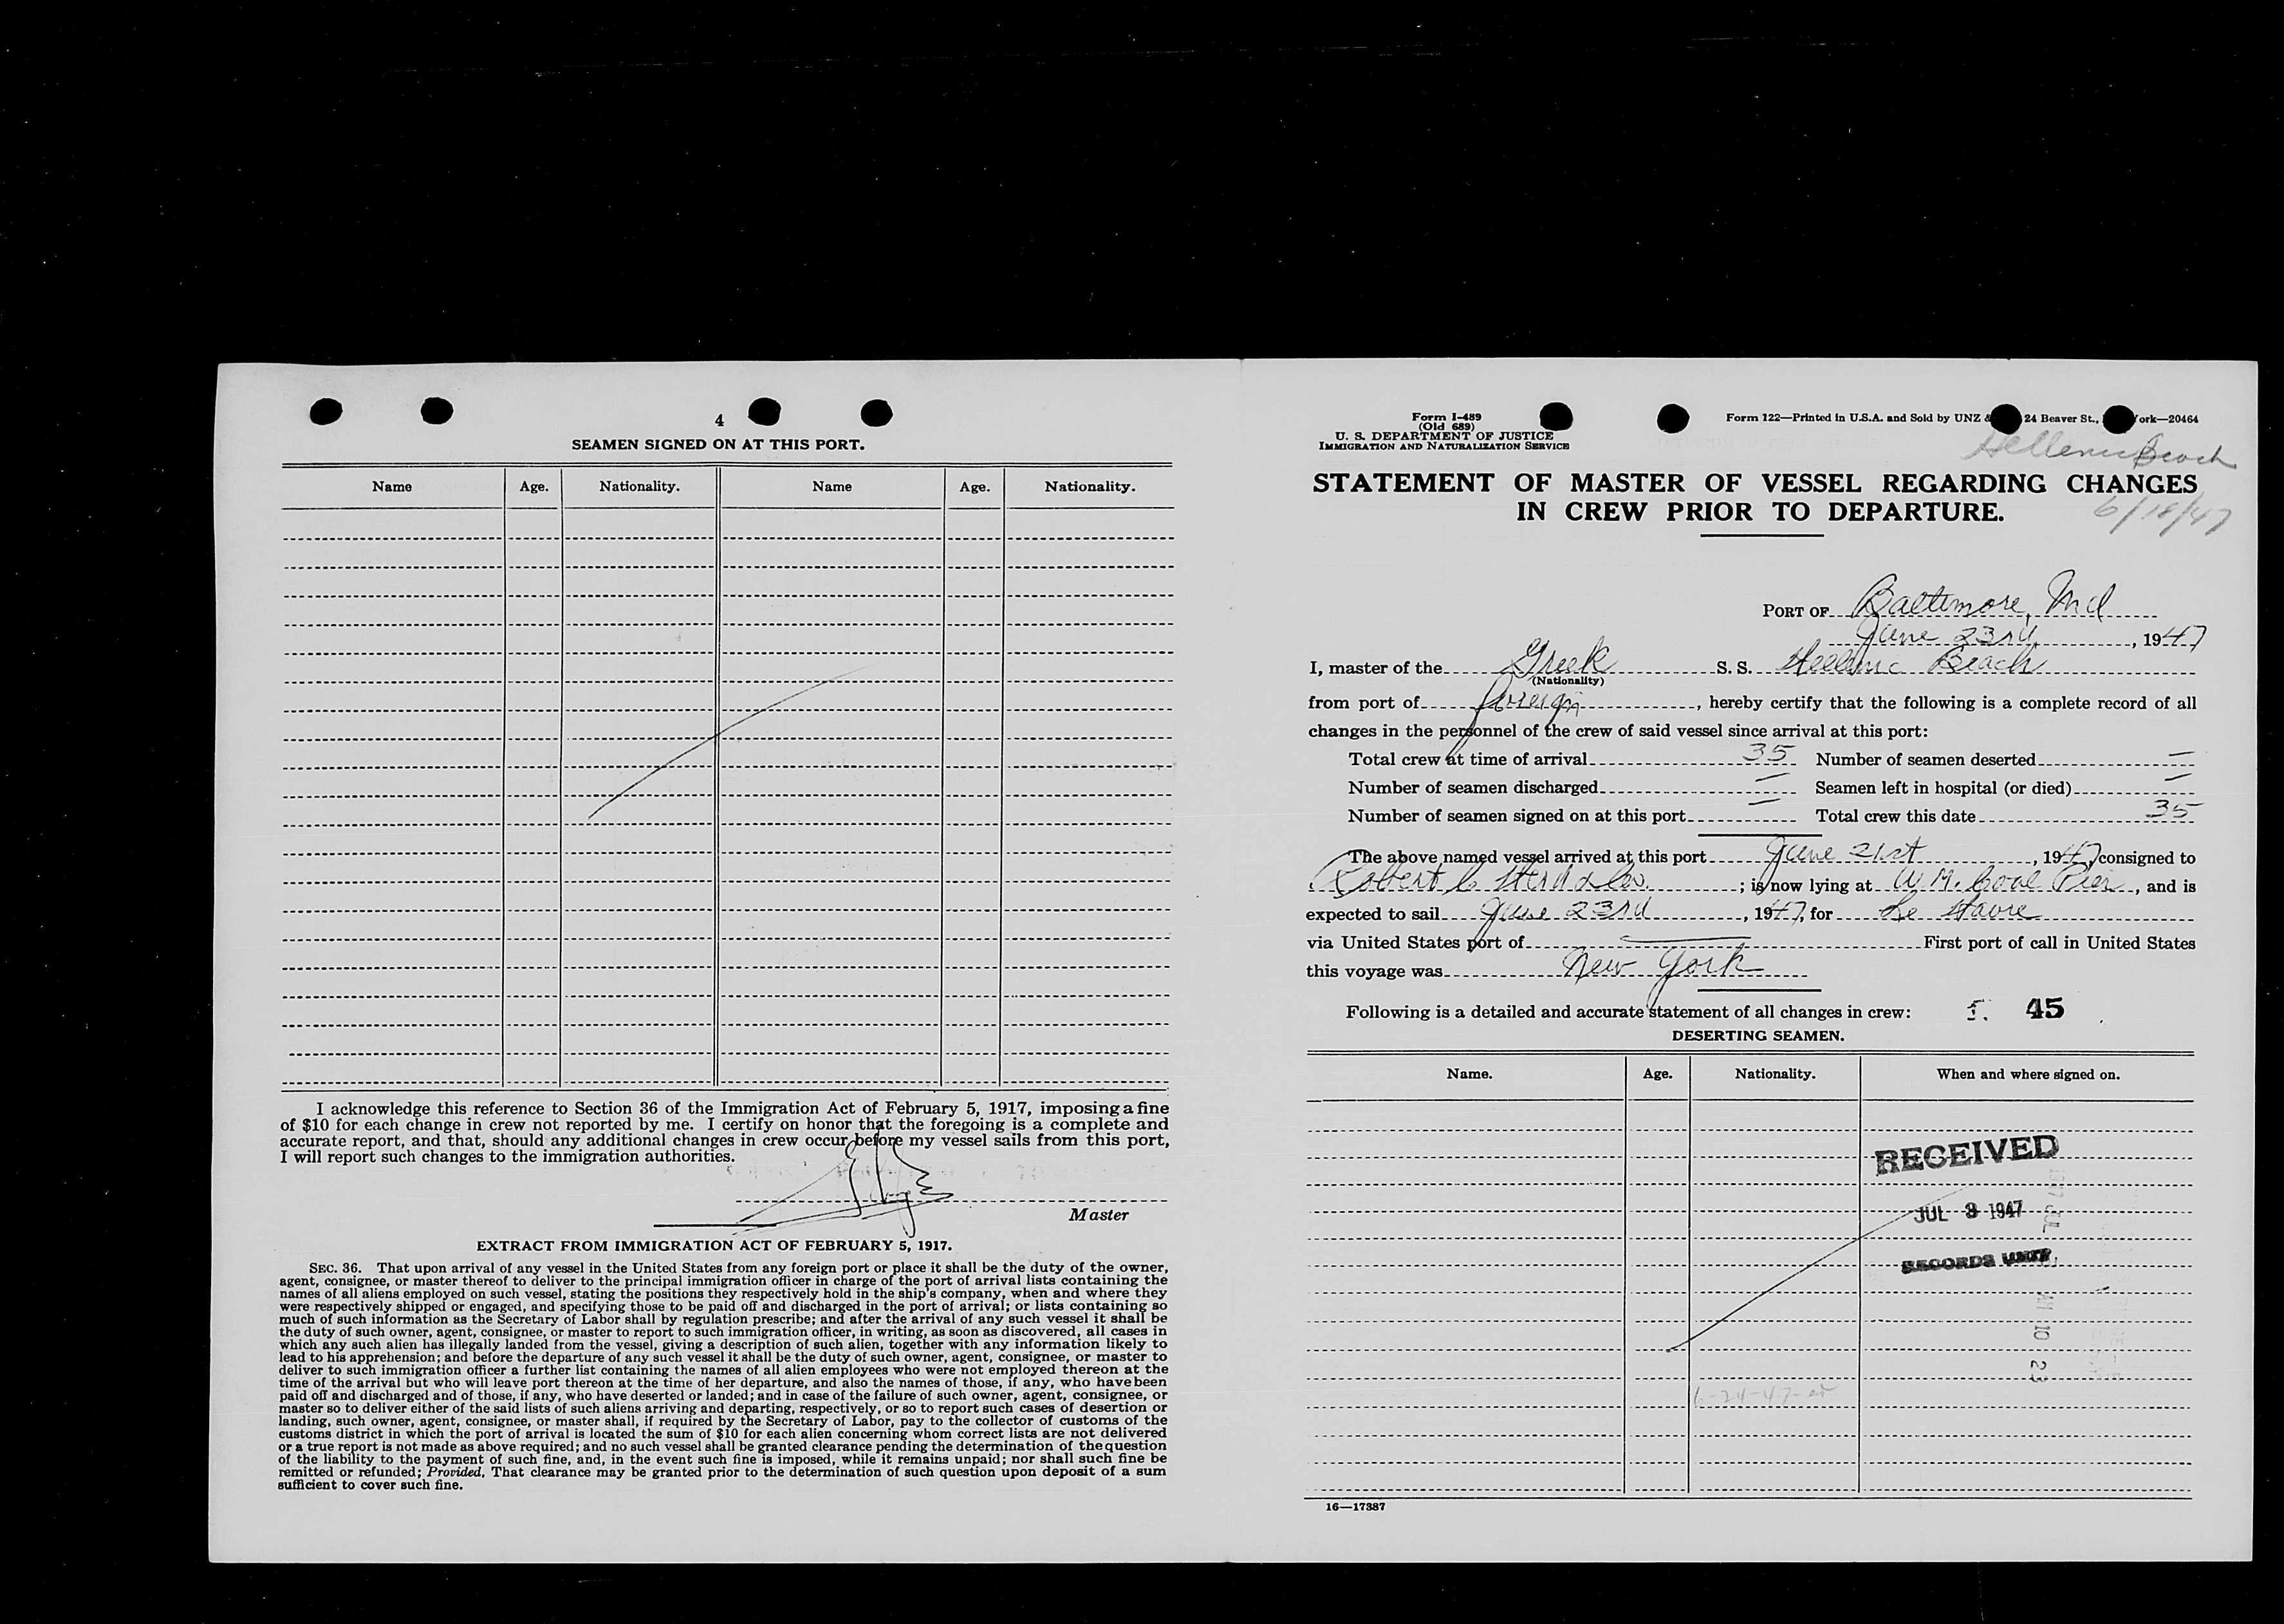 4
SEAMEN SIGNED ON AT THIS PORT.
Name Age. Nationality. Name Age. Nationality.
I acknowledge this reference to Section 36 of the Immigration Act of February 5, 1917, imposing a fine
of $10 for each change in crew not reported by me. I certify on honor that the foregoing is a complete and
accurate report, and that, should any additional changes in crew occur before my vessel sails from this port,
I will report such changes to the immigration authorities.
Master
EXTRACT FROM IMMIGRATION ACT OF FEBRUARY 5, 1917.
SEC. 36. That upon arrival of any vessel in the United States from any foreign port or place it shall be the duty of the owner,
agent, consignee, or master thereof to deliver to the principal immigration officer in charge of the port of arrival lists containing the
names of all aliens employed on such vessel, stating the positions they respectively hold in the ship's company, when and where they
were respectively shipped or engaged, and specifying those to be paid off and discharged in the port of arrival; or lists containing so
much of such information as the Secretary of Labor shall by regulation prescribe; and after the arrival of any such vessel it shall be
the duty of such owner, agent, consignee, or master to report to such immigration officer, in writing, as soon as discovered, all cases in
which any such alien has illegally landed from the vessel, giving a description of such alien, together with any information likely to
lead to his apprehension; and before the departure of any such vessel it shall be the duty of such owner, agent, consignee, or master to
deliver to such immigration officer a further list containing the names of all alien employees who were not employed thereon at the
time of the arrival but who will leave port thereon at the time of her departure, and also the names of those, if any, who have been
paid off and discharged and of those, if any, who have deserted or landed; and in case of the failure of such owner, agent, consignee, or
master so to deliver either of the said lists of such aliens arriving and departing, respectively, or so to report such cases of desertion or
landing, such owner, agent, consignee, or master shall, if required by the Secretary of Labor, pay to the collector of customs of the
customs district in which the port of arrival is located the sum of $10 for each alien concerning whom correct lists are not delivered
or a true report is not made as above required; and no such vessel shall be granted clearance pending the determination of the question
of the liability to the payment of such fine, and, in the event such fine is imposed, while it remains unpaid; nor shall such fine be
remitted or refunded; Provided, That clearance may be granted prior to the determination of such question upon deposit of a sum
sufficient to cover such fine.
Form I-489
(Old 689)
U. S. DEPARTMENT OF JUSTICE
IMMIGRATION AND NATURALIZATION SERVICE
Form 122—Printed in U.S.A. and Sold by UNZ & 24 Beaver St., ork—20464
Hellenic Beach
STATEMENT OF MASTER OF VESSEL REGARDING CHANGES
IN CREW PRIOR TO DEPARTURE.
6/18/47
PORT OF Baltimore, Md
June 23rd, 1947
I, master of the Greek S. S. Hellenic Beach
(Nationality)
from port of foreign, hereby certify that the following is a complete record of all
changes in the personnel of the crew of said vessel since arrival at this port:
Total crew at time of arrival 35 Number of seamen deserted —
Number of seamen discharged — Seamen left in hospital (or died) —
Number of seamen signed on at this port — Total crew this date 35
The above named vessel arrived at this port June 21st, 1947, consigned to
Robert C Herd & Co.; is now lying at W. M. Coal Pier, and is
expected to sail June 23rd, 1947, for Le Havre
via United States port of — First port of call in United States
this voyage was New York
Following is a detailed and accurate statement of all changes in crew: 45
DESERTING SEAMEN.
Name. Age. Nationality. When and where signed on.
RECEIVED
JUL 3 1947
RECORDS UNIT
AM 10 23
6-24-47
16—17387